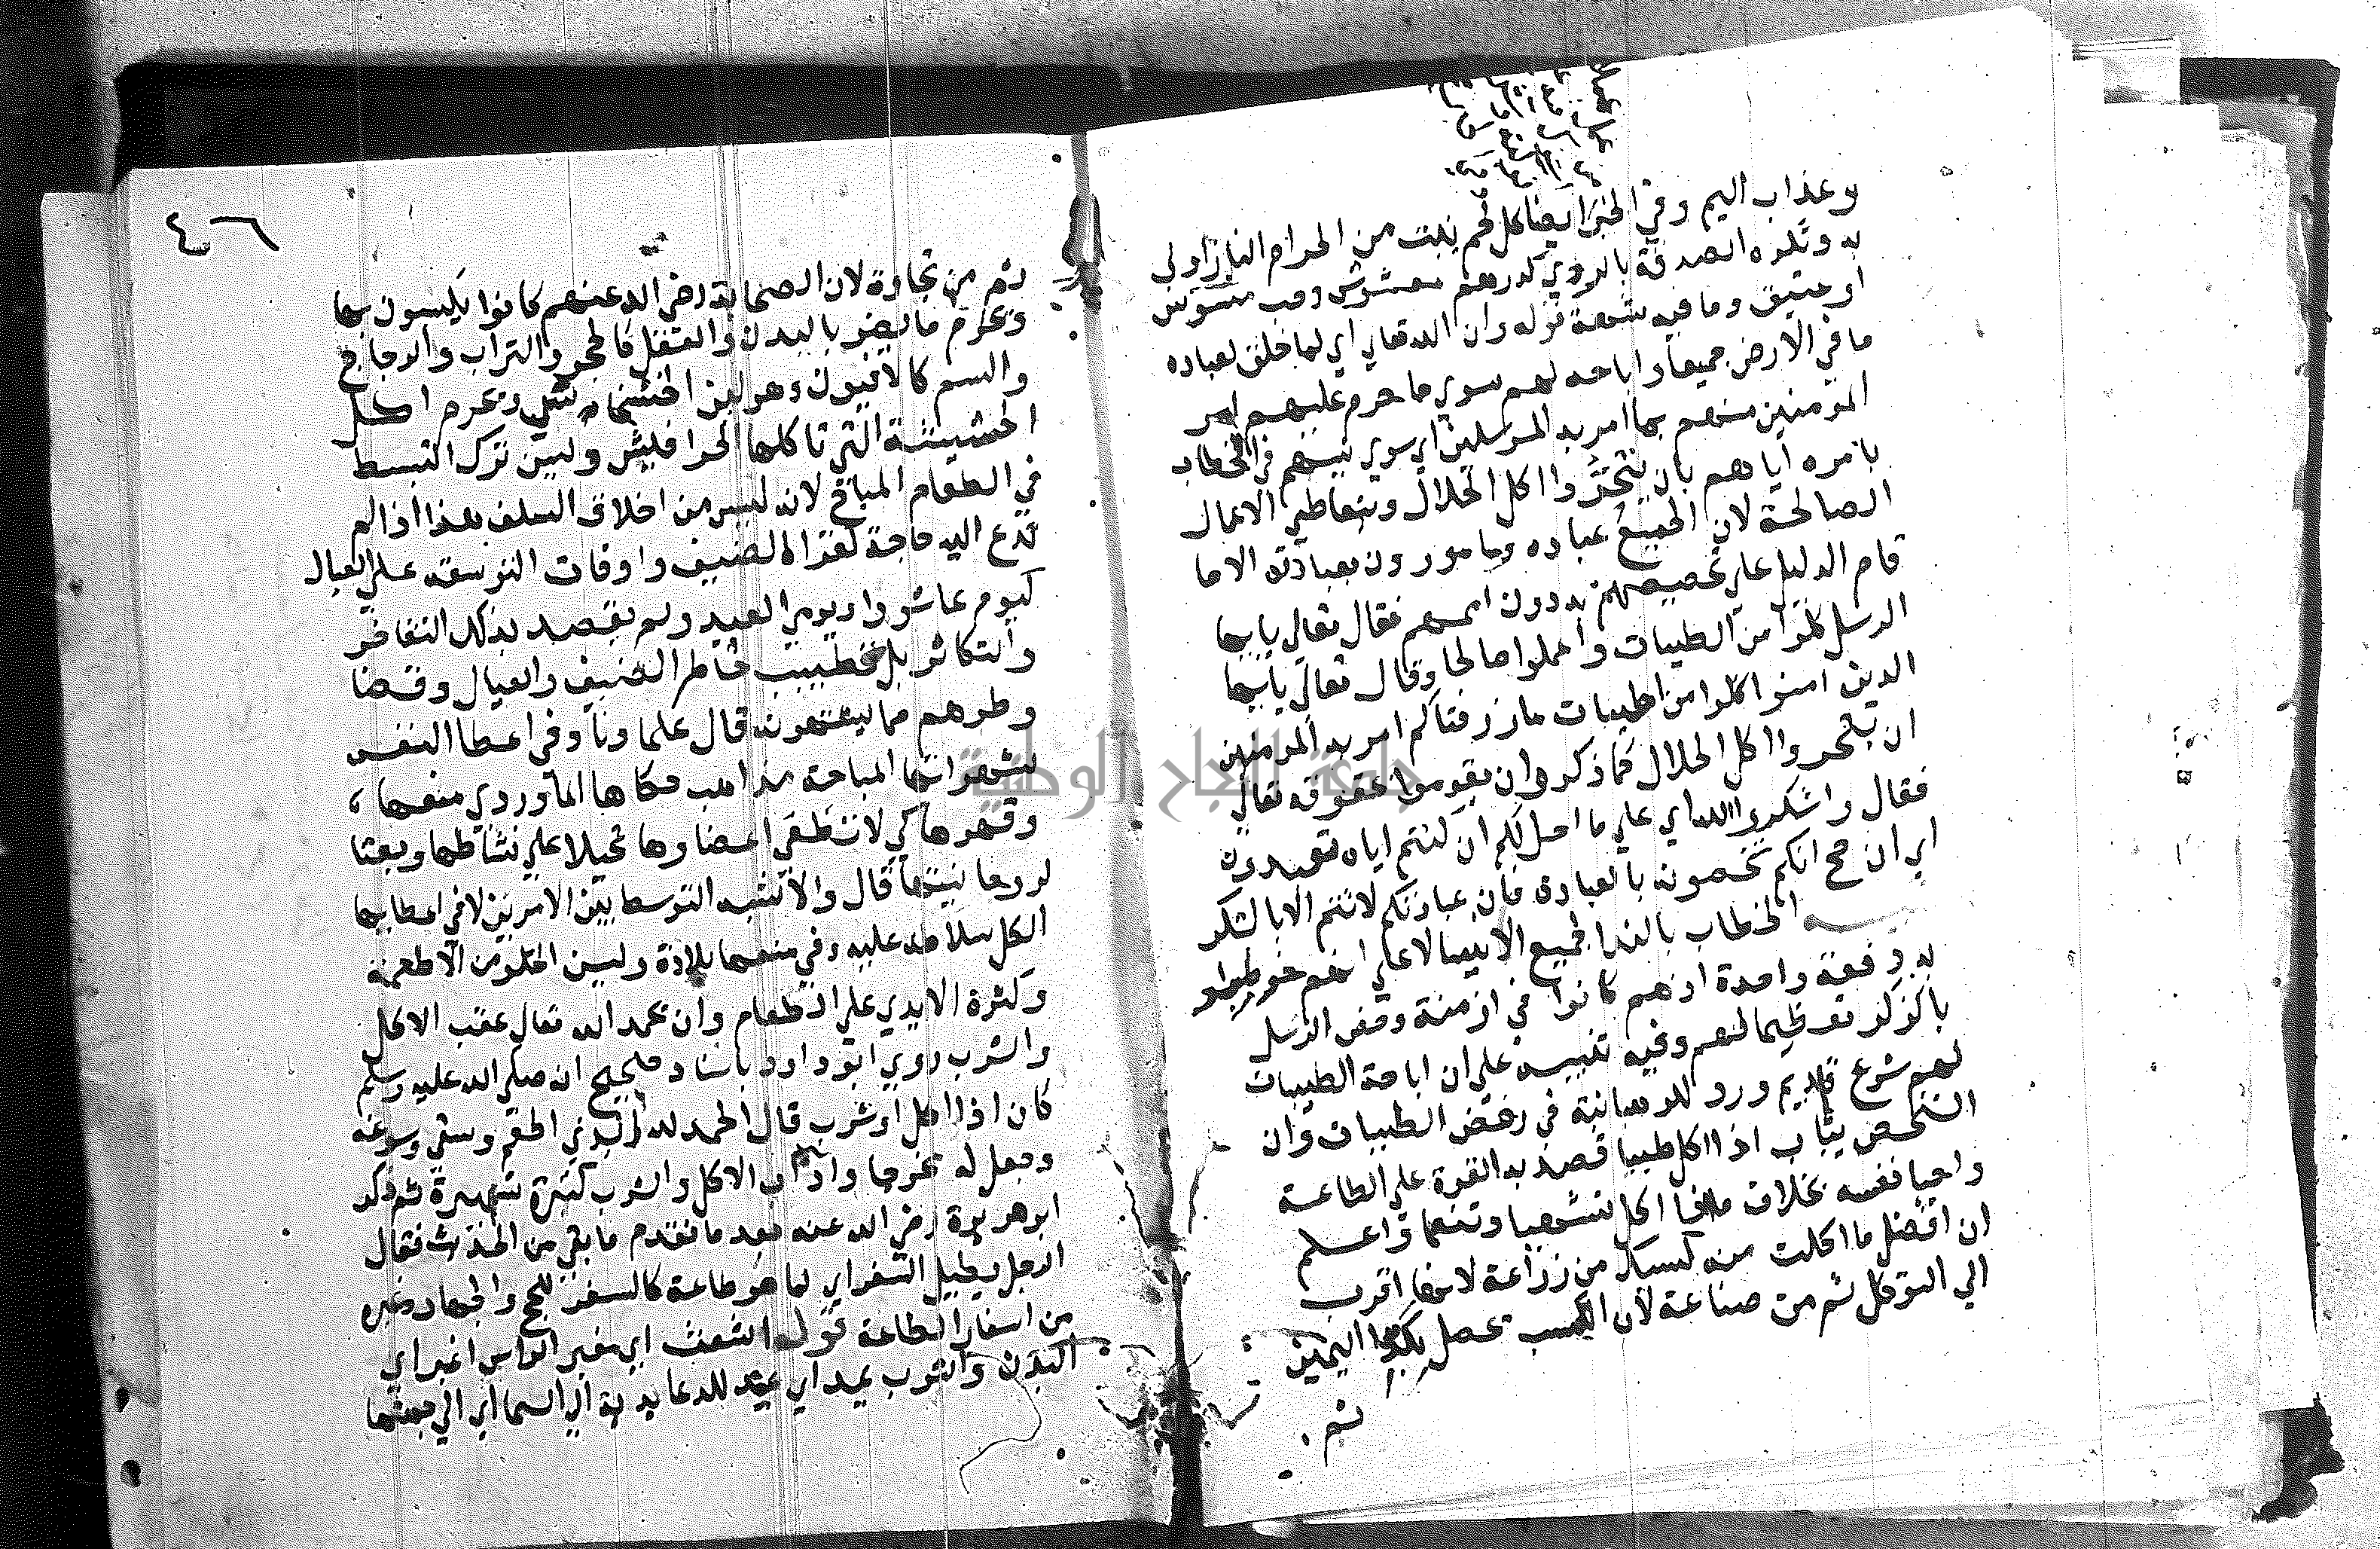 وعذاب اليم وفي الخبر ايضا كل لحم ينبت من الحرام النار اولى
به وتكره الصدقة بالردي كدرهم مغشوش وحب مسوس
او عتيق وما فيه شبهة قوله وان الله تعالى اي لما خلق لعباده
ما في الارض جميعا واباحه لهم سوي ما حرم عليهم امر
المومنين منهم بما امر به المرسلين اي سوي بينهم في الخطاب
بامره اياهم بان يتحروا اكل الحلال وتعاطي الاعمال
الصالحة لان الجميع عباده ومامورون بعبادته الا ما
قام الدليل علي تخصيصهم به دون اممهم فقال تعالي يايها
الرسل كلوا من الطيبات واعملوا صالحا وقال تعالي يايها
الذين امنوا كلوا من طيبات ما رزقناكم امر به المومنين
ان يتحروا اكل الحلال كما ذكر وان يقوموا بحقوقه تعالي
فقال واشكروا لله اي علي ما احل لكم ان كنتم اياه تعبدون
اي ان صح انكم تخصونه بالعبادة فان عبادتكم لا تتم الا بالشكر
الخطاب بالندا لجميع الانبيا لا علي انهم خوطبوا
به دفعة واحدة اذ هم كانوا في ازمنة وخص الرسل
بالذكر تعظيما لهم وفيه تنبيه علي ان اباحة الطيبات
لهم شرع قديم ورد للرهبانية في رفض الطيبات وان
الشخص يثاب اذا اكل طيبا قصد به القوة علي الطاعة
واحيا نفسه بخلاف ما اذا اكل تشهيا وتنعما واعلم
ان افضل ما اكلت منه كسبك من زراعة لانها اقرب
الي التوكل ثم من صناعة لان الكسب يحصل بكد اليمين
ثم
٤٦
ثم من تجارة لان الصحابة رضي الله عنهم كانوا يكتسبون بها
ويحرم ما يضر بالبدن والعقل كالحجر والتراب والزجاج
والسم كالافيون وهو لبن الخشخاش ويحرم اكل
الحشيشة التي تاكلها الحرافيش ويسن ترك التبسط
في الطعام المباح لانه ليس من اخلاق السلف هذا اذا لم
تدع اليه حاجة كقرا الضيف واوقات التوسعة علي العيال
كيوم عاشورا ويومي العيد ولم يقصد بذلك التفاخر
والتكاثر بل لتطييب خاطر الضيف والعيال وقضا
وطرهم مما يشتهونه قال علماونا وفي اعطا النفس
لشهواتها المباحة مذاهب حكاها الماوردي منعها
وقهرها كي لا تطغي اعضاوها تحيلا علي نشاطها وبعثا
لروحانيتها قال والاشبه التوسط بين الامرين لان في اعطايها
الكل سلاطه عليه وفي منعها بلادة ويسن الحلو من الاطعمة
وكثرة الايدي علي الطعام وان يحمد الله تعالي عقب الاكل
والشرب روي ابو داود باسناد صحيح انه صلي الله عليه وسلم
كان اذا اكل او شرب قال الحمد لله الذي اطعم وسقي وسوغه
وجعل له مخرجا واداب الاكل والشرب كثيرة شهيرة ثم ذكر
ابو هريرة رضي الله عنه بعد ما تقدم ما بقي من الحديث فقال
الرجل يطيل السفر اي لما هو طاعة كالسفر للحج والجهاد وغيره
من اسفار الطاعة قوله اشعث اي مغبر الراس اغبر اي
البدن والثوب يمد اي عند الدعا يديه الي السما اي الي جهتها
جامعة النجاح الوطنية